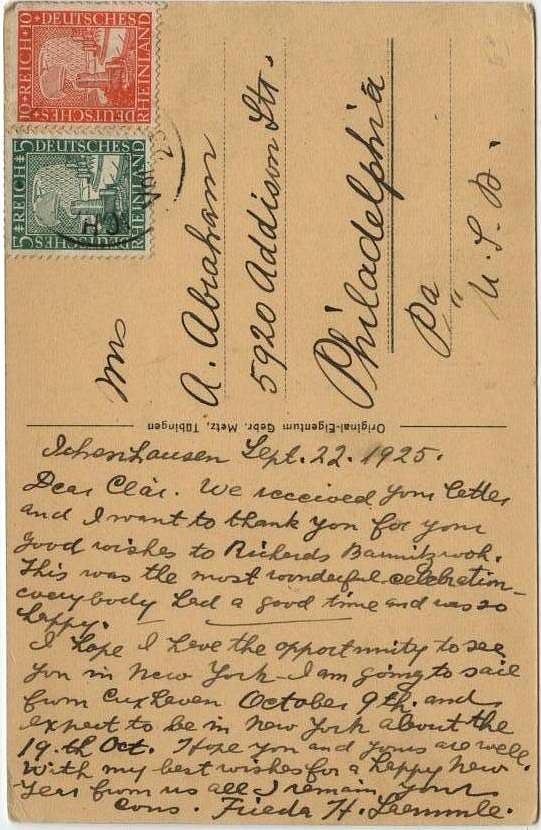 10 REICH 10 DEUTSCHES
RHEINLAND
DEUTSCHES
5 REICH 5 DEUTSCHES
RHEINLAND
DEUTSCHES
Mrs
A. Abraham
5920 Addison Str.
Philadelphia
Pa
U. S. A.
Original-Eigentum Gebr. Metz, Tübingen
Ichenhausen Sept. 22. 1925.
Dear Clär. We received your letter
and I want to thank you for your
good wishes to Richards Barmitzwoh.
This was the most wonderful celebration
everybody had a good time and was so
happy.
I hope I have the opportunity to see
you in New York - I am going to sail
from Cuxhaven October 9th. and
expect to be in New York about the
19.th Oct. Hope you and yours are well.
With my best wishes for a happy New
Year from us all I remain your
cous. Frieda H. Laemmle.